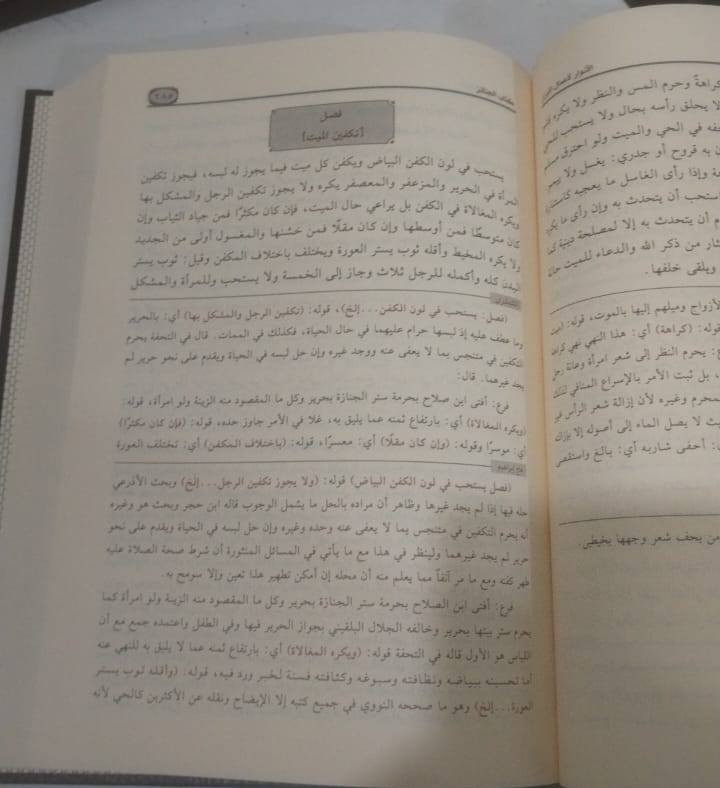 كتاب الجنائز
٢٨٥
فصل
[تكفين الميت]
يستحب في لون الكفن البياض ويكفن كل ميت فيما يجوز له لبسه، فيجوز تكفين
المرأة في الحرير والمزعفر والمعصفر يكره ولا يجوز تكفين الرجل والمشكل بها
ويكره المغالاة في الكفن بل يراعي حال الميت، فإن كان مكثرًا فمن جياد الثياب وإن
كان متوسطًا فمن أوسطها وإن كان مقلًا فمن خشنها والمغسول أولى من الجديد
ولا يكره المخيط وأقله ثوب يستر العورة ويختلف باختلاف المكفن وقيل: ثوب يستر
البدن كله وأكمله للرجل ثلاث وجاز إلى الخمسة ولا يستحب وللمرأة والمشكل
(فصل: يستحب في لون الكفن...إلخ)، قوله: (تكفين الرجل والمشكل بها) أي: بالحرير
وما عطف عليه إذ لبسها حرام عليهما في حال الحياة، فكذلك في الممات. قال في التحفة يحرم
التكفين في متنجس بما لا يعفى عنه ووجد غيره وإن حل لبسه في الحياة ويقدم على نحو حرير لم
يجد غيرهما. قال:
فرع: أفتى ابن صلاح بحرمة ستر الجنازة بحرير وكل ما المقصود منه الزينة ولو امرأة، قوله:
(ويكره المغالاة) أي: بارتفاع ثمنه عما يليق به، غلا في الأمر جاوز حده، قوله: (فإن كان مكثرًا)
أي: موسرًا وقوله: (وإن كان مقلًا) أي: معسرًا، قوله: (باختلاف المكفن) أي: تختلف العورة
(فصل يستحب في لون الكفن البياض) قوله: (ولا يجوز تكفين الرجل...إلخ) وبحث الأذرعي
حله فيها إذا لم يجد غيرها وظاهر أن مراده بالحل ما يشمل الوجوب قاله ابن حجر وبحث هو وغيره
أنه يحرم التكفين في متنجس بما لا يعفى عنه وحده وغيره وإن حل لبسه في الحياة ويقدم على نحو
حرير لم يجد غيرهما ولينظر في هذا مع ما يأتي في المسائل المنثورة أن شرط صحة الصلاة عليه
طهر كفنه ومع ما مر آنفاً مما يعلم منه أن محله إن أمكن تطهير هذا تعين وإلا سومح به.
فرع: أفتى ابن الصلاح بحرمة ستر الجنازة بحرير وكل ما المقصود منه الزينة ولو امرأة كما
يحرم ستر بيتها بحرير وخالفه الجلال البلقيني بجواز الحرير فيها وفي الطفل واعتمده جمع مع أن
اللباس هو الأول قاله في التحفة قوله: (ويكره المغالاة) أي: بارتفاع ثمنه عما لا يليق به للنهي عنه
أما تحسينه ببياضه ونظافته وسبوغه وكثافته فسنة لخبر ورد فيه، قوله: (وأقله ثوب يستر
العورة...إلخ) وهو ما صححه النووي في جميع كتبه إلا الإيضاح ونقله عن الأكثرين كالحي لأنه
كراهةً وحرم المس والنظر ولا يكره
لا يحلق رأسه بحال ولا يستحب
في الحي والميت ولو احترق
به قروح أو جدري: يغسل ولا
وإذا رأى الغاسل ما يعجبه
يستحب أن يتحدث به وإن رأى ما
أن يتحدث به إلا لمصلحة دينية
من ذكر الله والدعاء للميت
ويلقى خلفها.
الأزواج وميلهم إليها بالموت، قوله:
قوله: (كراهة) أي: هذا النهي نهي
يحرم النظر إلى شعر امرأة وعانة رجل
بل ثبت الأمر بالإسراع المنافي لذلك
المحرم وغيره لأن إزالة شعر الرأس
لا يصل الماء إلى أصوله إلا
أحفى شاربه أي: بالغ واستقصى
من يحف شعر وجهها يخيطي.